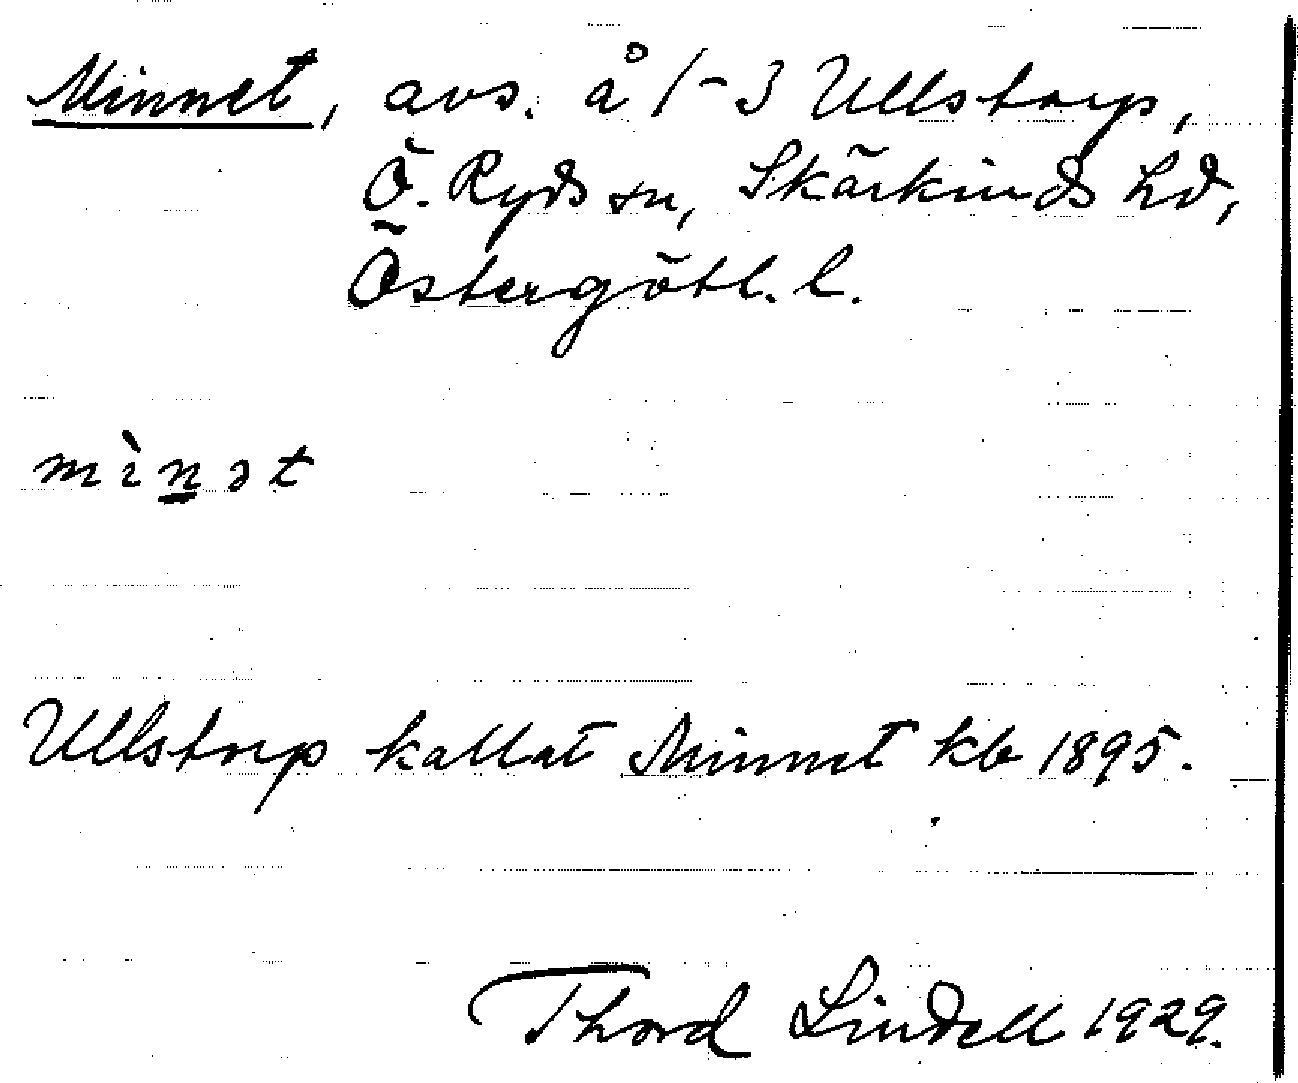 Minnet, avs. å 1-3 Ullstorp,
Ö. Ryds sn, Skärkinds hd,
Östergötl. l.
mìn̲ət
Ullstorp kallat Minnet kb 1895.
Thord Lindell 1929.